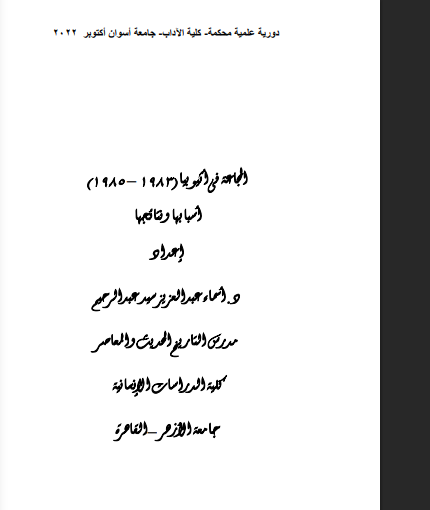 دورية علمية محكمة- كلية الآداب- جامعة أسوان أكتوبر ٢٠٢٢
المجاعة في أثيوبيا (١٩٨٣ – ١٩٨٥)
أسبابها ونتائجها
إعداد
د. أسماء عبدالعزيز سيد عبدالرحيم
مدرس التاريخ الحديث والمعاصر
كلية الدراسات الإنسانية
جامعة الأزهر – القاهرة